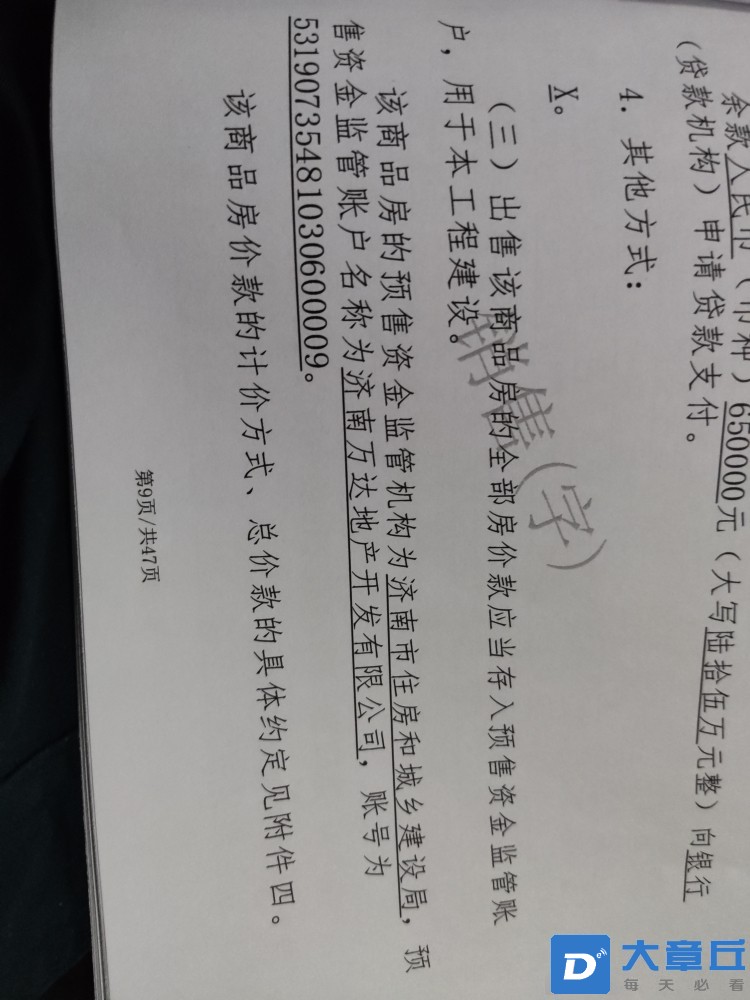 余款人民币（币种）650000元（大写陆拾伍万元整）向银行
（贷款机构）申请贷款支付。
4. 其他方式：
X。
（三）出售该商品房的全部房价款应当存入预售资金监管账
户，用于本工程建设。
该商品房的预售资金监管机构为济南市住房和城乡建设局，预
售资金监管账户名称为济南万达地产开发有限公司，账号为
53190735481030600009。
该商品房价款的计价方式、总价款的具体约定见附件四。
第9页/共47页
销售(字)
大章丘
每天必看